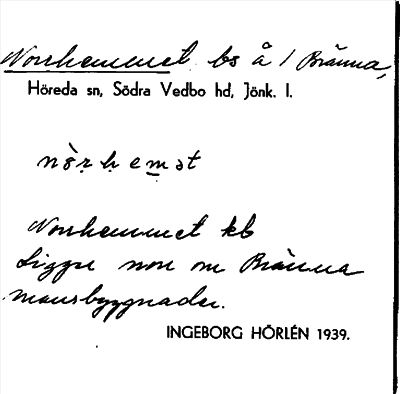 Norrhemmet bs å / Bränna,
Höreda sn, Södra Vedbo hd, Jönk. l.
nòr̥ḥem̥ət
Norrhemmet kb
Ligger norr om Bränna
mansbyggnader.
INGEBORG HÖRLÉN 1939.